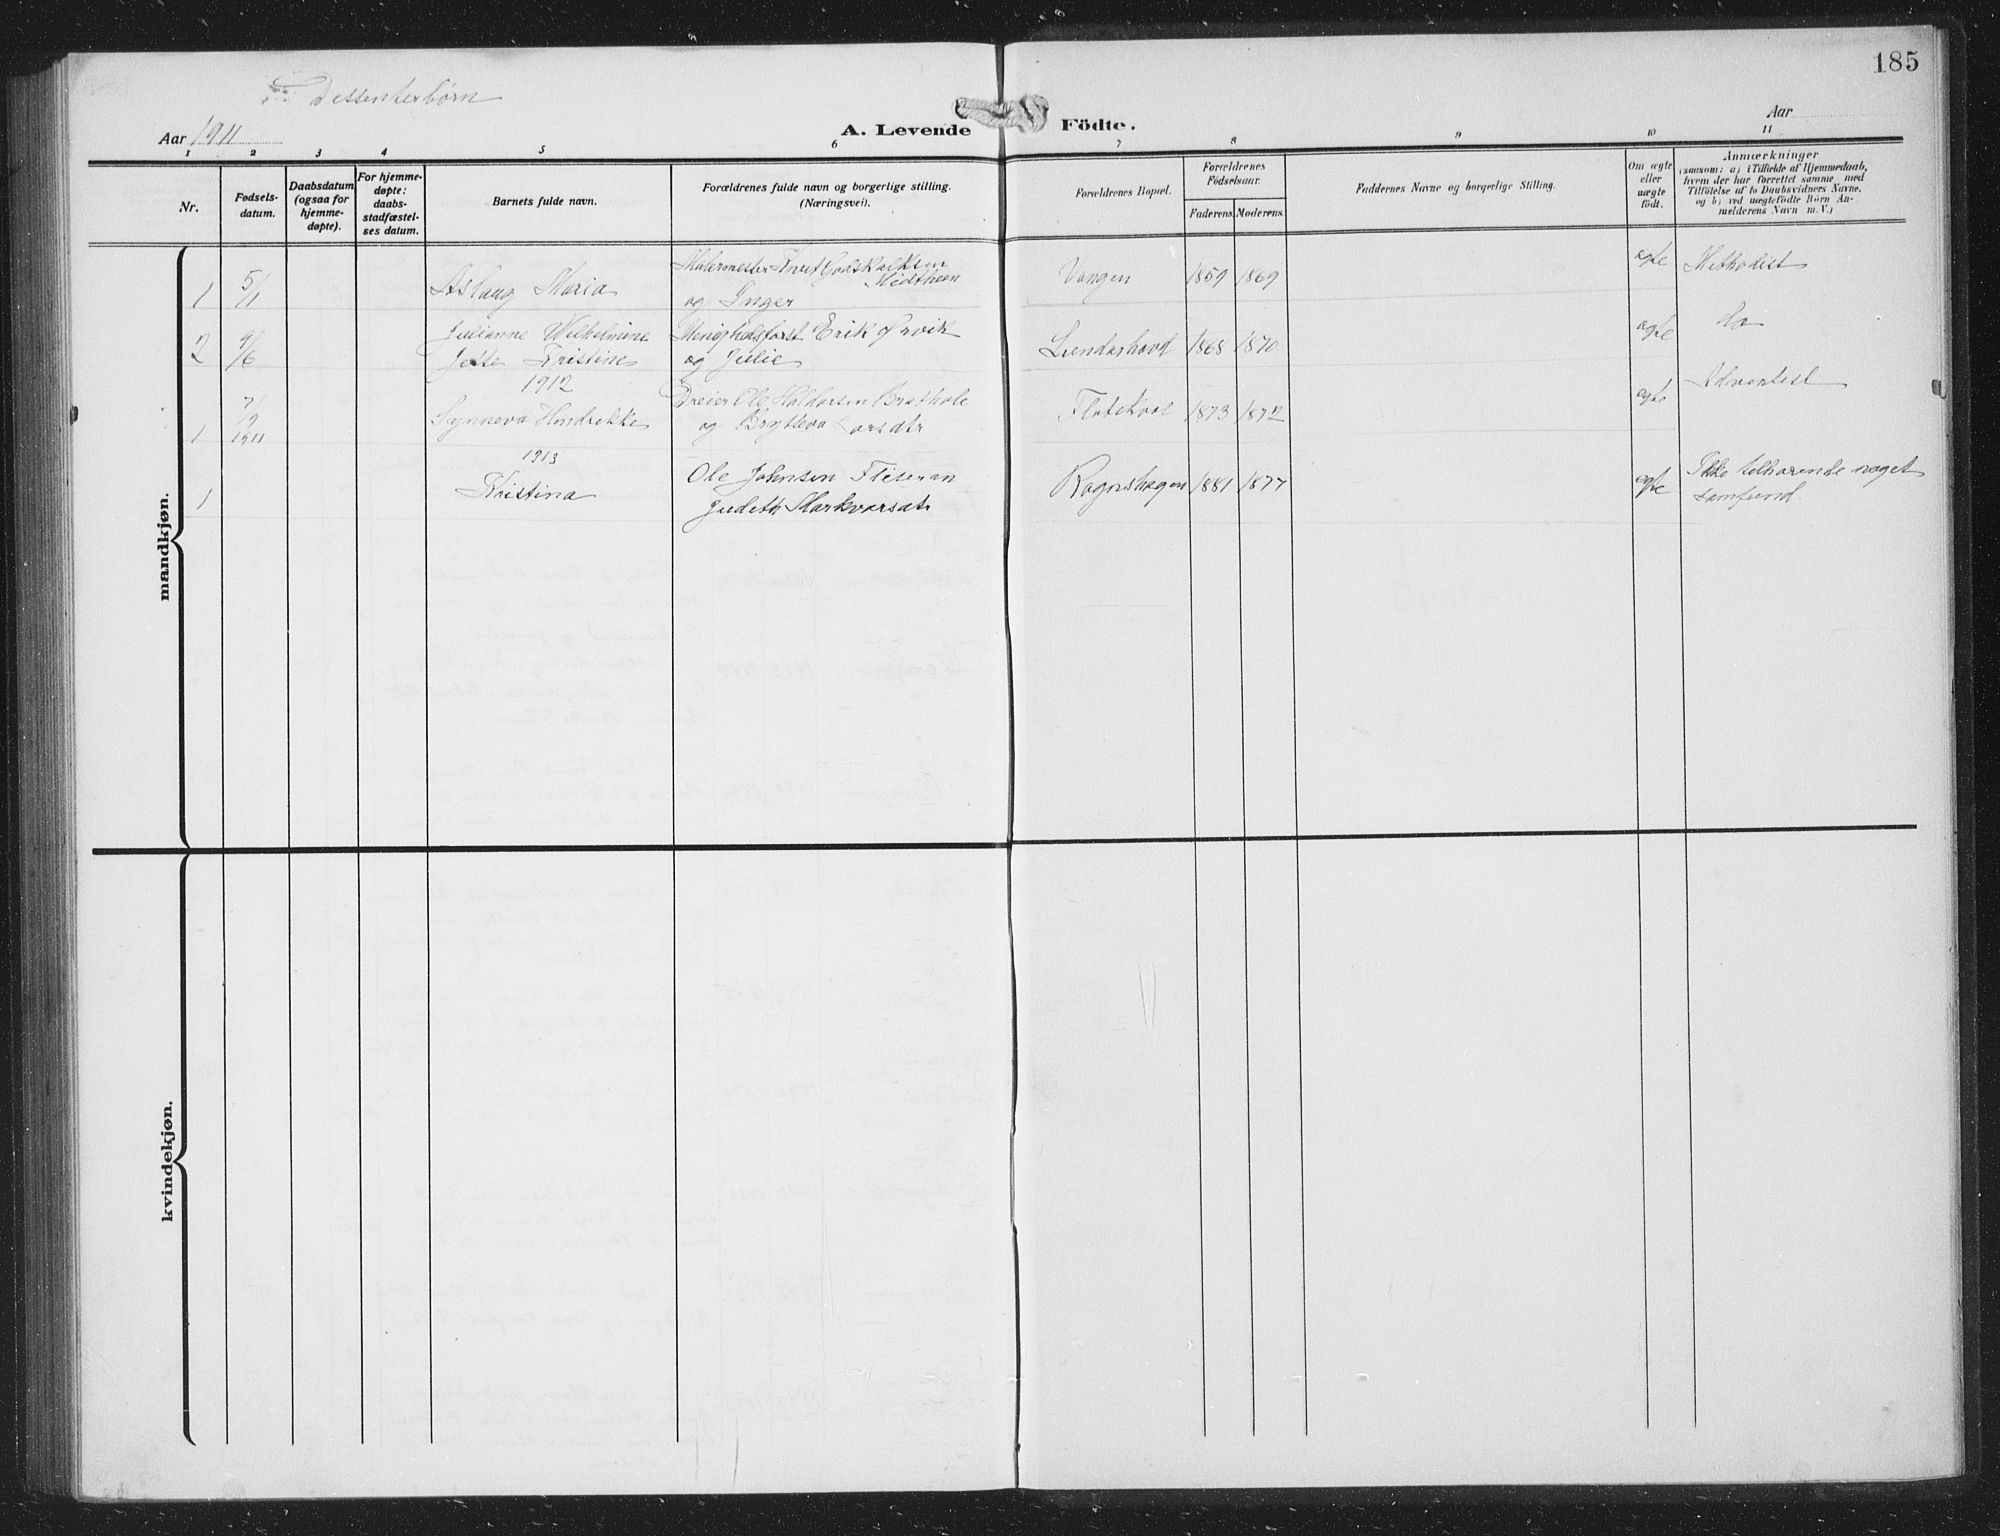 185
Dissenterbørn
Aar 1911
A. Levende Födte.
Aar
1 2 3 4 5 6 7 8 9 10 11
Nr.
Fødsels-
datum.
Daabsdatum
(ogsaa for
hjemme-
døpte).
For hjemme-
døpte:
daabs-
stadfæstel-
ses datum.
Barnets fulde navn.
Forældrenes fulde navn og borgerlige stilling.
(Næringsvei).
Forældrenes Bopæl.
Forældrenes
Födselsaar.
Faderens. Moderens.
Faddernes Navne og borgerlige Stilling.
Om ægte
eller
uægte
födt.
Anmærkninger
(saasom: a) i Tilfælde af Hjemmedaab,
hvem der har forrettet samme med
Tilföielse af to Daabsvidners Navne.
og b) ved uægtefödte Börn An-
melderens Navn m. V.)
mandkjøn.
1 5/1 Aslaug Maria
Malermester Knut Godskalksen
Midthun
og Inger
Vangen 1859 1869 ægte Methodist
2 9/6 Julianne Wilhelmine
Jette Kristine
Menighedsforst Erik Ørvik
og Julie
Lundarhovd 1868 1870 ægte do
1912
1 7/9 1911 Synneva Hendrikke
Dreier Ole Haldorsen Brathole
og Brytteva Larsdtr
Flatekval 1873 1872 ægte Adventist
1913
1 Kristina
Ole Johnsen Fliseran
Judeth Markvarsdtr
Rognshagen 1881 1877 ægte Ikke tilhørende noget
samfund.
kvindekjøn.